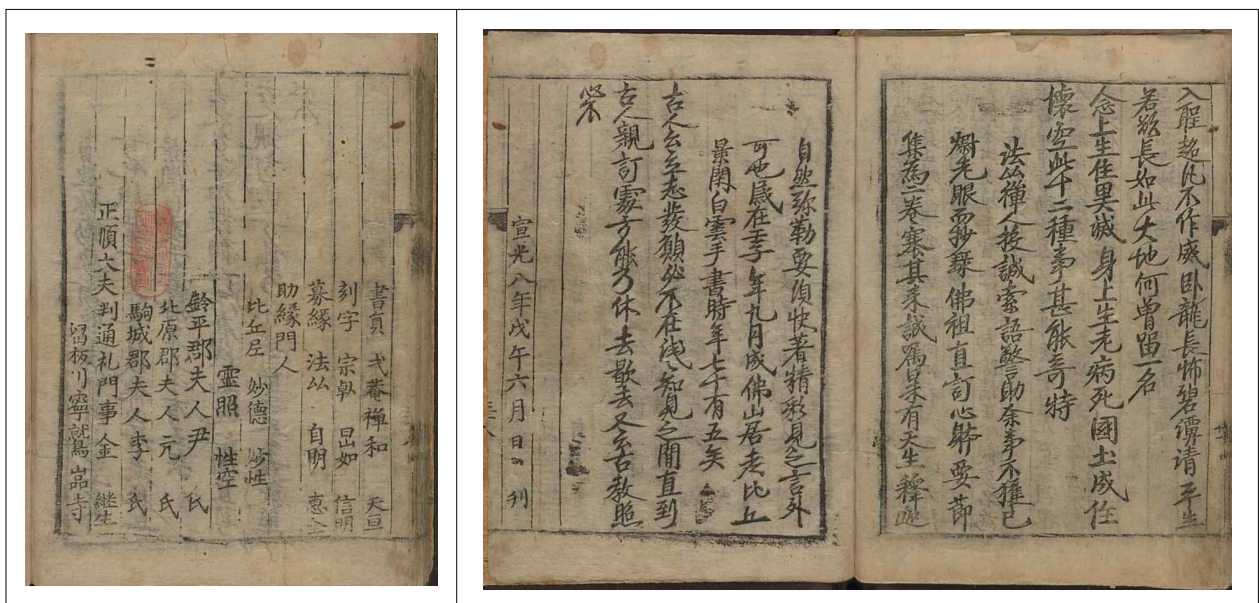 書員 弌菴禪和 天亘
刻字 宗倝 旵如 信明
募緣 法㳂 自明 惠全
助緣門人
比丘尼 妙德 妙性
靈照 性空
鈴平郡夫人尹 氏
北原郡夫人元 氏
駒城郡夫人李 氏
正順大夫判通礼門事金 継生
留板川寧鷲嵓寺
入聖超凡不作威卧龍長怖碧潭清平生
若能長如此大地何曾留一名
念上生住異滅身上生老病死國土成住
懷空此十二種事甚能奇特
法㳂禪人投誠索語警助余事不獲已
爛老眼而抄錄佛祖直訂心躰要節
集為二卷塞其來誠焉果有天生釋迦
自然弥勒要須快著精彩見之言外
可也歲在壬子年九月成佛山居老比丘
景閑白雲手書時年七十有五矣
古人云立志發願必不在浅知見之間直到
古人親訂處方能乃休去歇去又云古教照
宣光八年戊午六月日 刋